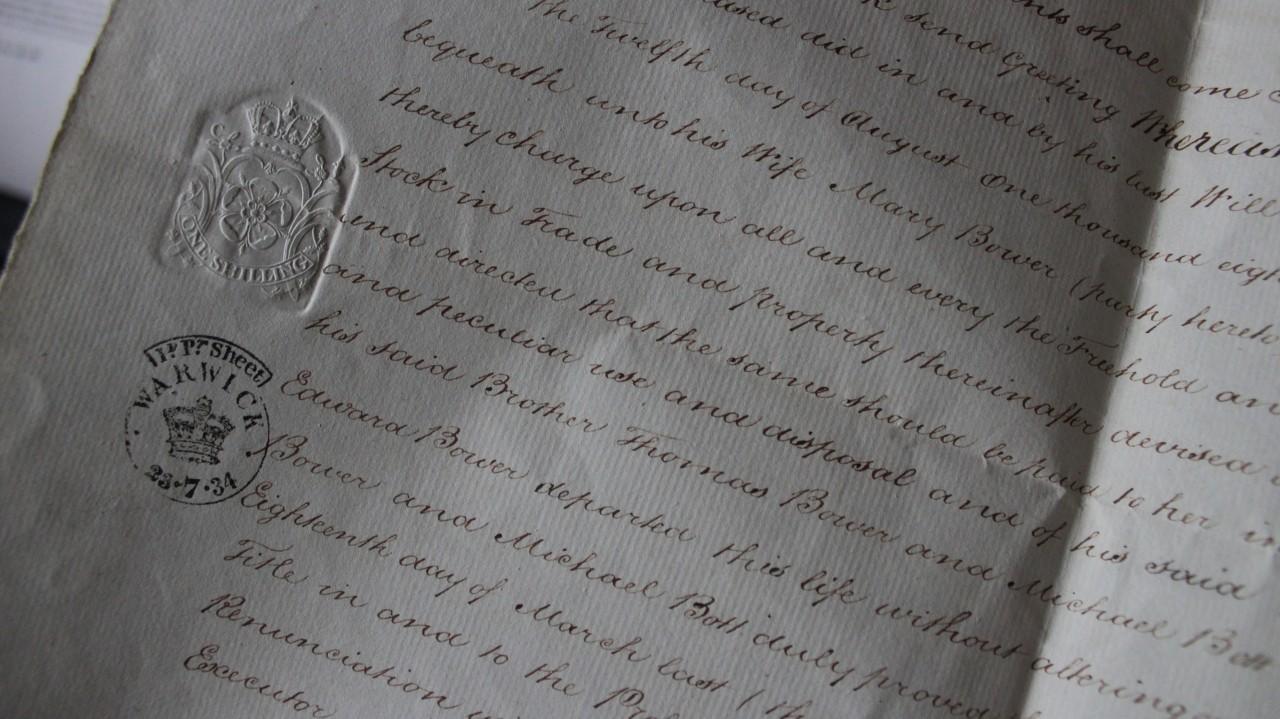 shall come
send Greeting Whereas
The Twelfth day of August One thousand eigh
did in and by his last Will
bequeath unto his Wife Mary Bower (party hereto
thereby charge upon all and every the Freehold an
Stock in Trade and property thereinafter devised
and directed that the same should be paid to her in
and peculiar use and disposal and of his said
his said Brother Thomas Bower and Michael Bott
Edward Bower departed this life without altering
Bower and Michael Bott duly proved
Eighteenth day of March last (th
Title in and to the
Renunciation
Executor
ONE SHILLING
Sheet
WARWICK
23·7·34